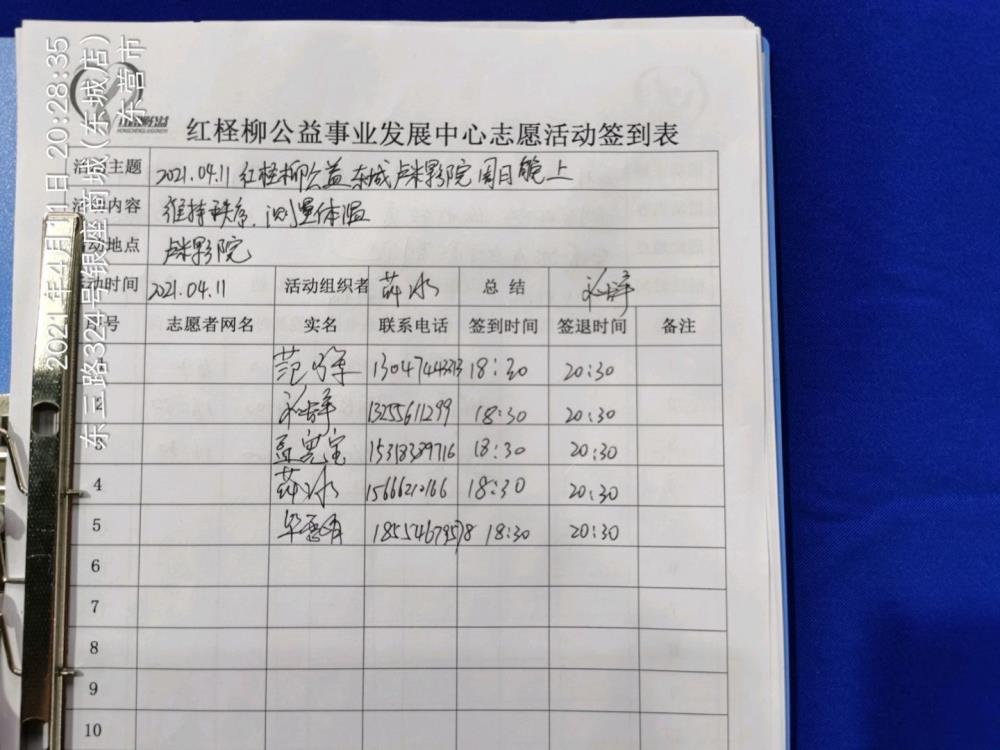 红柽柳公益事业发展中心志愿活动签到表
活动主题 2021.04.11 红柽柳公益东城卢米影院周日晚上
活动内容 维持秩序、测量体温
活动地点 卢米影院
活动时间 2021.04.11 活动组织者 薛冰 总结
号 志愿者网名 实名 联系电话 签到时间 签退时间 备注
18:30 20:30
13255611299 18:30 20:30
15318389716 18:30 20:30
4 薛冰 15666212166 18:30 20:30
5 18:30 20:30
6
7
8
9
10
2021年4月11日 20:28:35
东三路324号银座商城(东城店)
东营市